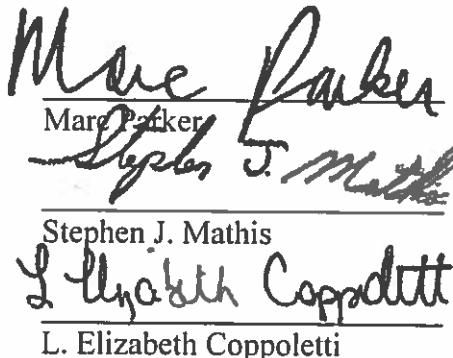 Marc Parker
Marc Parker
Stephen J. Mathis
Stephen J. Mathis
L Elizabeth Coppoletti
L. Elizabeth Coppoletti